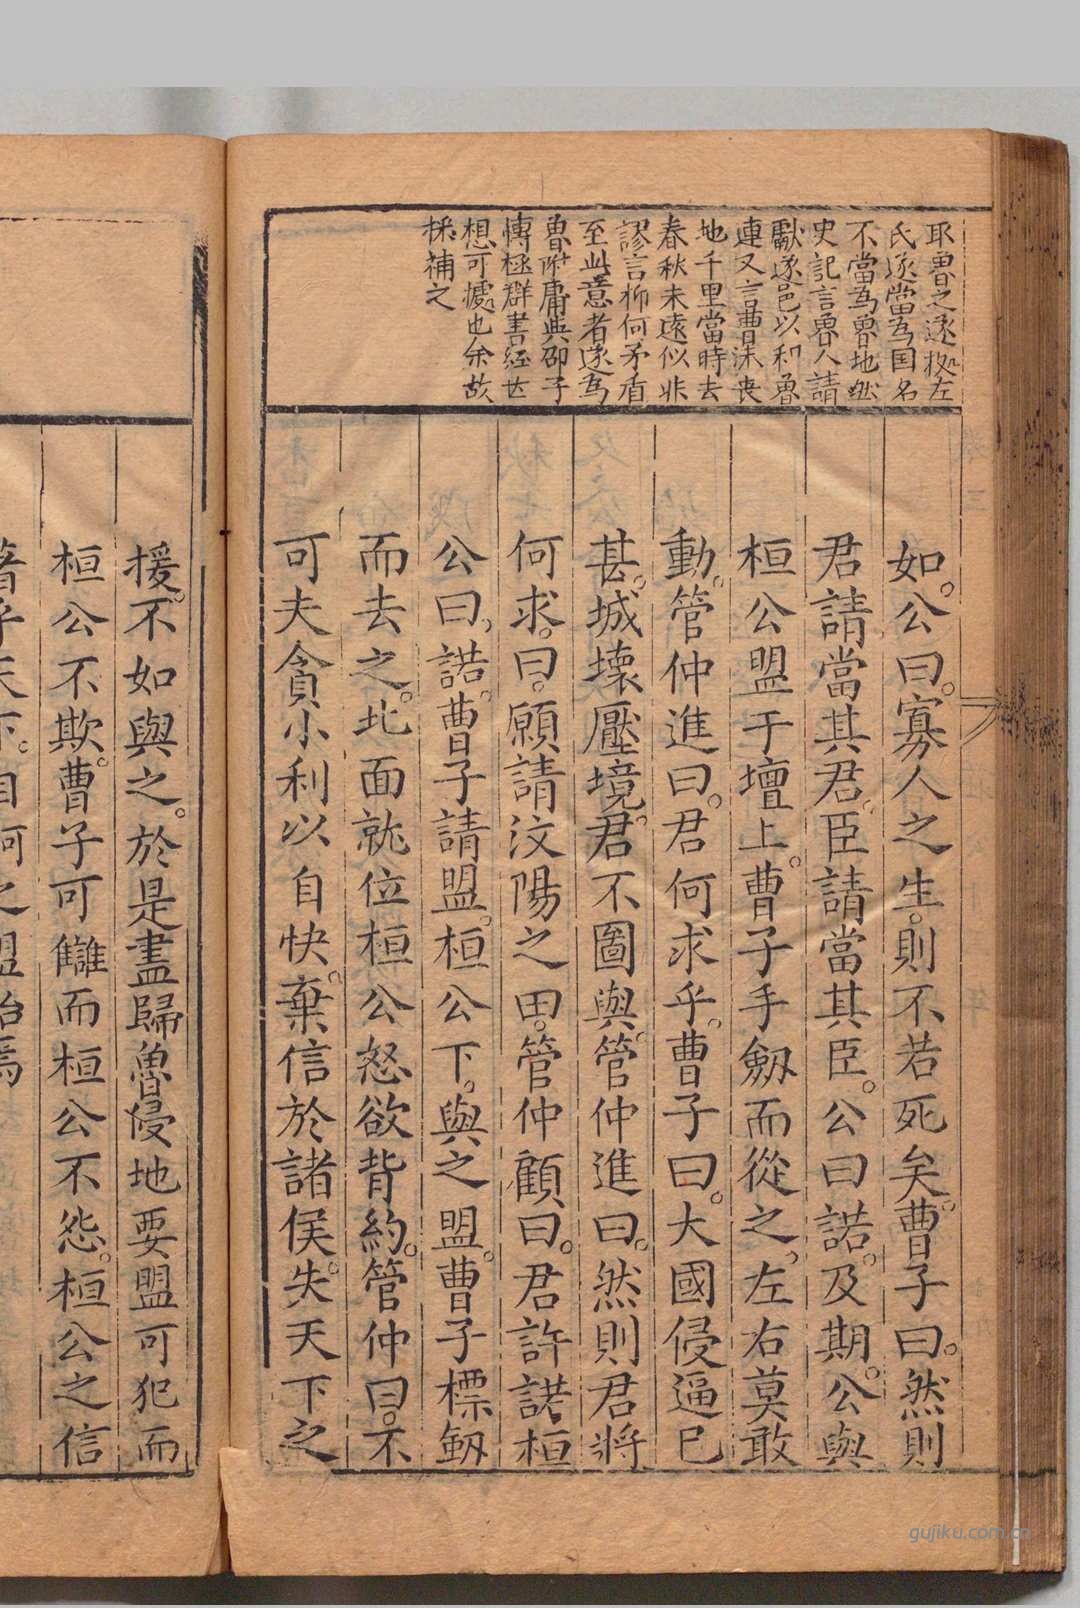 耶魯之遂拠左
氏遂當為国名
不當為魯地然
史記言魯人請
獻遂邑以和魯
連又言曹沫喪
地千里當時去
春秋未遠似非
謬言抑何矛盾
至此意者遂為
魯附庸與邵子
博極群書経世
想可據也余故
採補之
如。公曰。寡人之生。則不若死矣。曹子曰。然則
君請當其君。臣請當其臣。公曰諾。及期。公與
桓公盟于壇上。曹子手劔而從之。左右莫敢
動。管仲進曰。君何求乎。曹子曰。大國侵逼已
甚。城壞壓境。君不圖與。管仲進曰。然則君將
何求。曰。願請汶陽之田。管仲顧曰。君許諾桓
公曰。諾。曹子請盟。桓公下。與之盟。曹子標劔
而去之。北面就位桓公怒欲背約。管仲曰。不
可夫貪小利以自快。棄信於諸侯。失天下之
援。不如與之。於是盡歸魯侵地要盟可犯而
桓公不欺。曹子可讎而桓公不怨。桓公之信
著乎天下。自柯之盟始焉
gujiku.com.cn